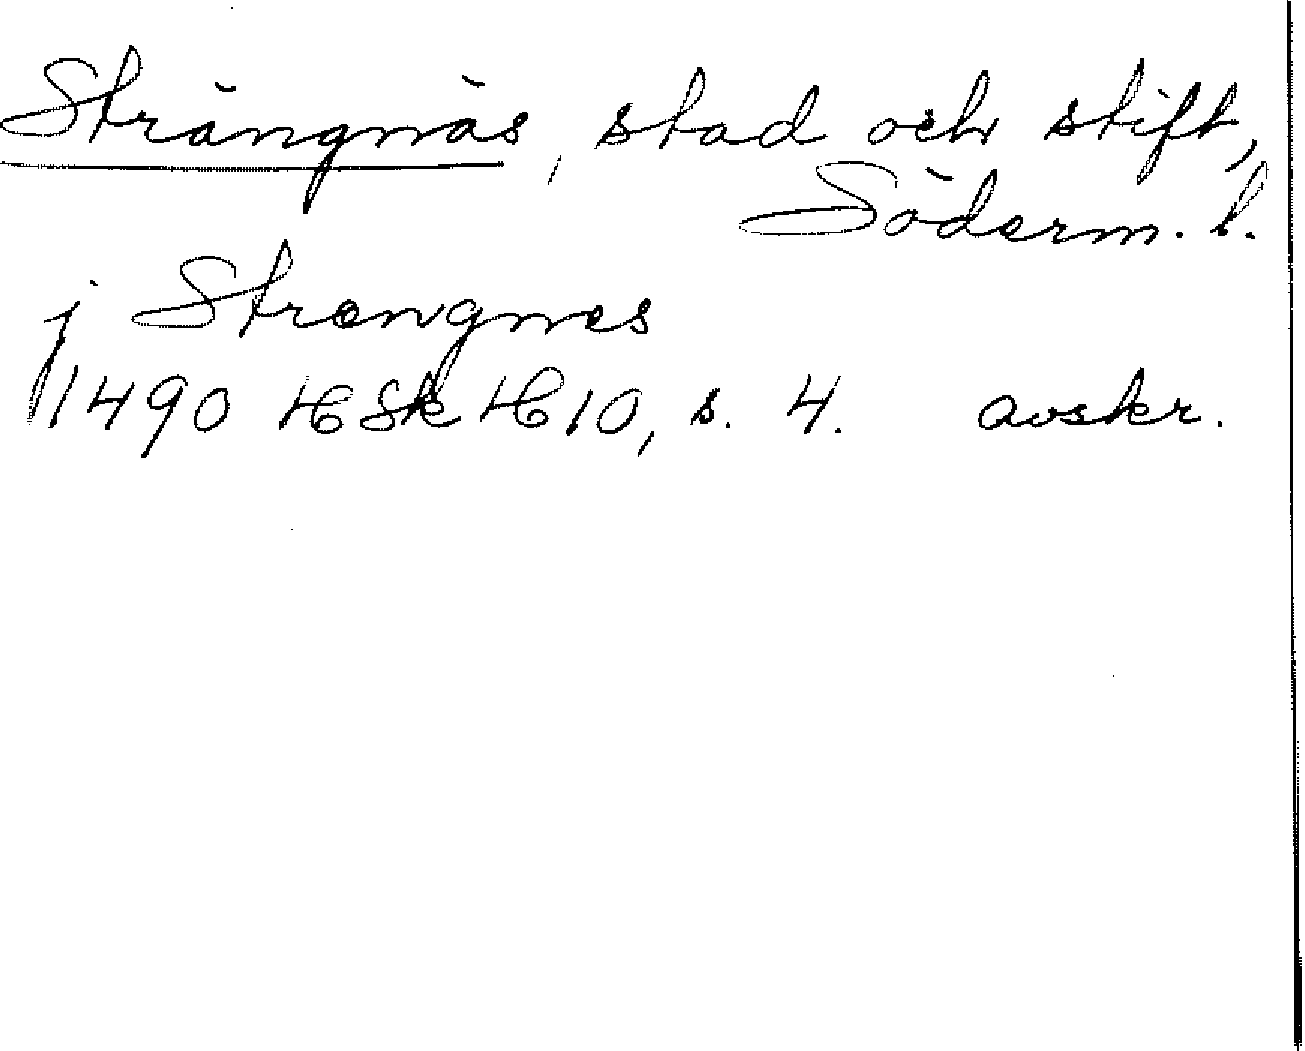 Strängnäs, stad och stift,
Söderm. l.
j Strengnes
1490 HSk H 10, s. 4. avskr.